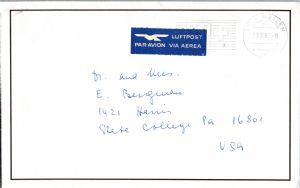 LUFTPOST
PAR AVION VIA AEREA
Dr. and Mrs.
E. Bergman
1421 Harris
State College Pa 16801
USA